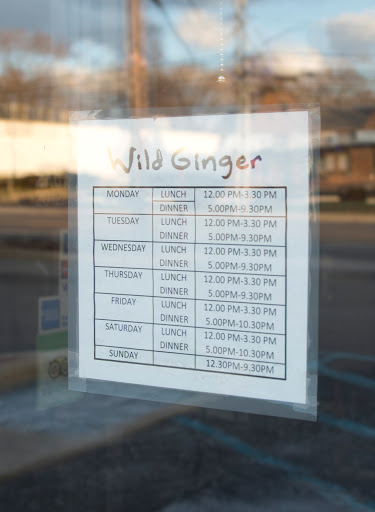 Wild Ginger
MONDAY LUNCH 12.00 PM-3.30 PM
DINNER 5.00PM-9.30PM
TUESDAY LUNCH 12.00 PM-3.30 PM
DINNER 5.00PM-9.30PM
WEDNESDAY LUNCH 12.00 PM-3.30 PM
DINNER 5.00PM-9.30PM
THURSDAY LUNCH 12.00 PM-3.30 PM
DINNER 5.00PM-9.30PM
FRIDAY LUNCH 12.00 PM-3.30 PM
DINNER 5.00PM-10.30PM
SATURDAY LUNCH 12.00 PM-3.30 PM
DINNER 5.00PM-10.30PM
SUNDAY 12.30PM-9.30PM